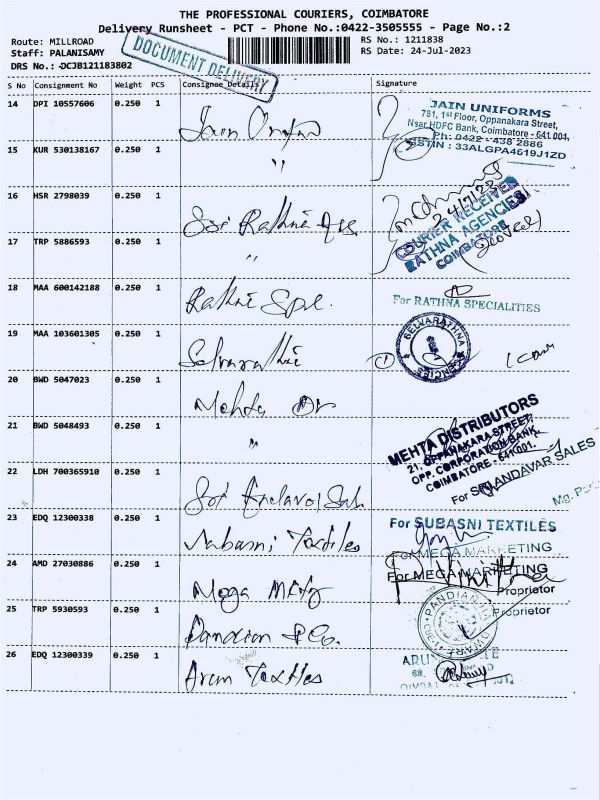 THE PROFESSIONAL COURIERS, COIMBATORE
Delivery Runsheet - PCT - Phone No.:0422-3505555 - Page No.:2
Route: MILLROAD
RS No.: 1211838
Staff: PALANISAMY
RS Date: 24-Jul-2023
DRS No.: DCJB121183802
DOCUMENT DELIVERY
S No Consignment No Weight PCS Consignee Details Signature
14 DPI 10557606 0.250 1
Jain
JAIN UNIFORMS
781, 1st Floor, Oppanakara Street,
Near HDFC Bank, Coimbatore - 641 001.
Ph: 0422 - 438 2886
GSTIN : 33ALGPA4619J1ZD
15 KUR 530138167 0.250 1
"
16 HSR 2798039 0.250 1
Sri Rathna Ags
24/7/23
COURIER RECEIVED
RATHNA AGENCIES
COIMBATORE
17 TRP 5886593 0.250 1
"
18 MAA 600142188 0.250 1
Rathna Spl.
For RATHNA SPECIALITIES
19 MAA 103601305 0.250 1
Selvarathna
SELVARATHNA AGENCIES
20 BWD 5047023 0.250 1
Mehta
21 BWD 5048493 0.250 1
"
MEHTA DISTRIBUTORS
21, OPPANAKARA STREET,
OPP. CORPORATION BANK,
COIMBATORE - 641 001.
22 LDH 700365910 0.250 1
Sri
For SRI ANDAVAR SALES
Mg. Par
23 EDQ 12300338 0.250 1
Subasni Textiles
For SUBASNI TEXTILES
For MEGA MARKETING
24 AMD 27030886 0.250 1
Mega Mktg
For MEGA MARKETING
Proprietor
25 TRP 5930593 0.250 1
Pandian & Co.
PANDIAN
Proprietor
26 EDQ 12300339 0.250 1
Arun Textiles
ARUN
68,